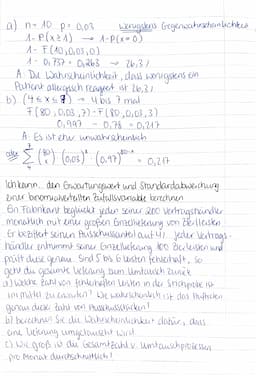 a) n=10 p=0,03 wenigstens Gegenwahrscheinlichkeit
1-P(x≥1) → 1-P(x=0)
1- F(10,0.03,0)
1- 0,737 = 0,263 → 26,3%
A: Die Wahrscheinlichkeit, dass wenigstens ein
Patient allergisch reagiert ist 26,3%
b) (4≤x≤7) → 4 bis 7 mal
F(80,0.03,7)-F(80,0.03,3)
0,997 - 0,78 = 0,217
A: Es ist eher unwahrscheinlich
oder Σ (80 x) · (0,03)^x · (0,97)^80-x = 0,217
Ich kann den Erwartungswert und Standardabweichung
einer binomialverteilten Zufallsvariable berechnen
Ein Fabrikant beglückt jeden seiner 200 Vertragshändler
monatlich mit einer großen Einzellieferung von Zierleisten
Er beziffert seinen Ausschussanteil auf 4%. Jeder Vertrags-
händler entnimmt seiner Einzellieferung 100 Zierleisten und
prüft diese genau. Sind 5 bis 6 Leisten fehlerhaft, so
geht die gesamte Lieferung zum Umtausch zurück
a) Welche Zahl von fehlerhaften Leisten in der Stichprobe ist
im Mittel zu erwarten? Wie wahrscheinlich ist das Auftreten
genau dieser Zahl von Ausschussstücken?
b) Berechnen Sie die Wahrscheinlichkeit dafür, dass
eine Lieferung umgetauscht wird.
c) Wie groß ist die Gesamtzahl v. Umtauschprozessen
pro Monat durchschnittlich?